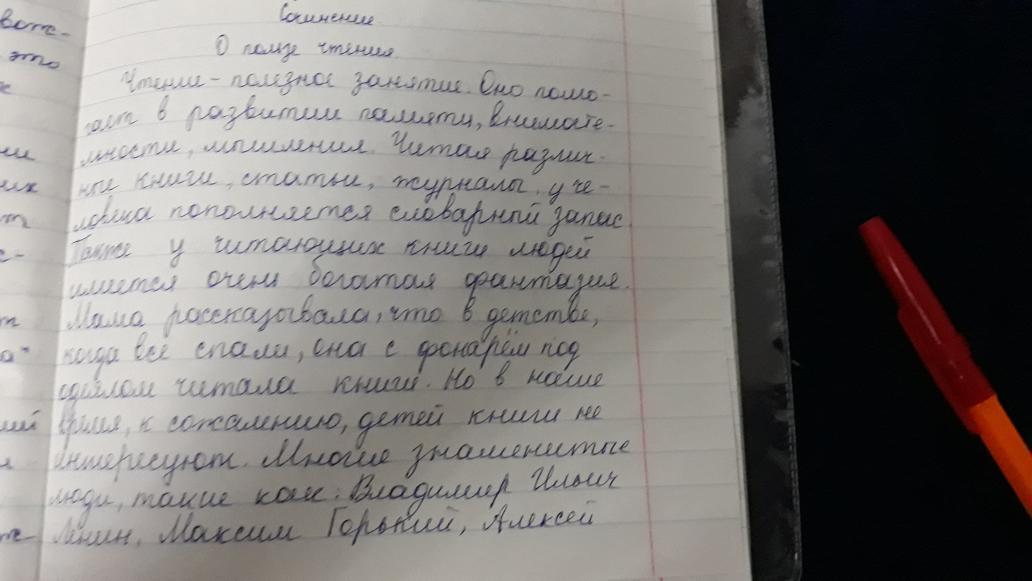 Сочинение
О пользе чтения.
Чтение - полезное занятие. Оно помо-
гает в развитии памяти, внимате-
льности, мышления. Читая различ-
ные книги, статьи, журналы, у че-
ловека пополняется словарный запас.
Также у читающих книги людей
имеется очень богатая фантазия.
Мама рассказывала, что в детстве,
когда все спали, она с фонарём под
одеялом читала книги. Но в наше
время, к сожалению, детей книги не
интересуют. Многие знаменитые
люди, такие как: Владимир Ильич
Ленин, Максим Горький, Алексей